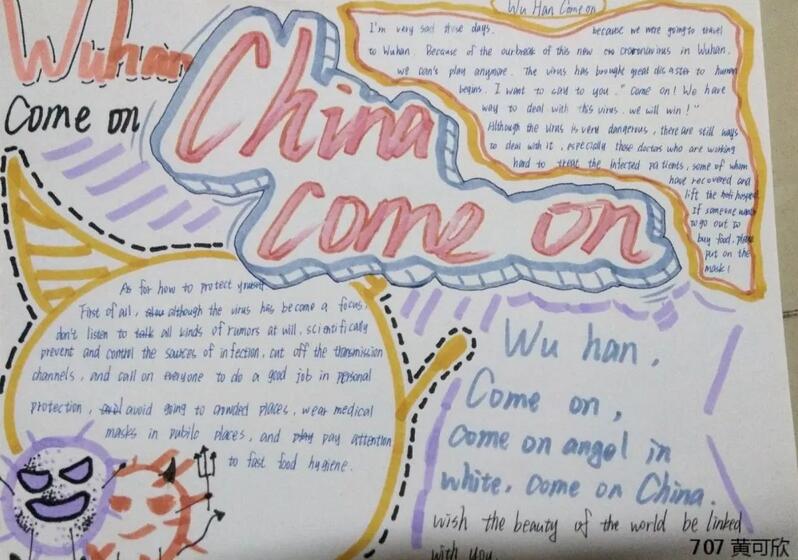 Wuhan
Come on
China
come on
Wu Han Come on
I'm very sad these days. because we were going to travel
to Wuhan. Because of the ourbreak of this new coronavirus in Wuhan.
we can't play anymore. The virus has brought great disaster to human
begins. I want to say to you. "Come on! We have
way to deal with this virus. we will win!"
Although the virus is very dangerous, there are still ways
to deal with it, especially those doctors who are working
hard to treat the infected patients, some of whom
have recovered and
lift the hospi
If someone wants
to go out to
buy food, please
put on the
mask!
As for how to protect yourself
First of all, although the virus has become a focus,
don't listen to all kinds of rumors at will, scientifically
prevent and control the sources of infection, cut off the transmission
channels, and call on everyone to do a good job in personal
protection, avoid going to crowded places, wear medical
masks in public places, and pay attention
to fast food hygiene.
Wu han,
Come on,
come on angel in
white. Come on China.
wish the beauty of the world be linked
with you.
707 黄可欣